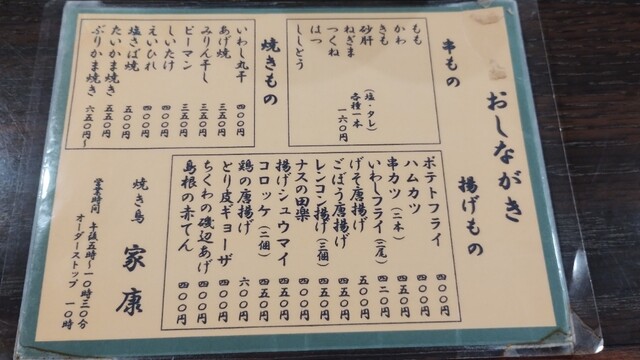 おしながき
串もの
もも
かわ
きも
砂肝
ねぎま
つくね
はつ
ししとう
（塩・タレ）
各種一本
一六〇円
焼きもの
いわし丸干 四〇〇円
あげ焼 三五〇円
みりん干し 三五〇円
ピーマン 三五〇円
しいたけ 四〇〇円
えいひれ 四〇〇円
塩さば焼 五〇〇円
たいかま焼き 五〇〇円
ぶりかま焼き 六五〇円〜
揚げもの
ポテトフライ 四〇〇円
ハムカツ 四〇〇円
串カツ（二本） 四五〇円
いわしフライ（三尾） 四二〇円
げそ唐揚げ 五五〇円
ごぼう唐揚げ 四五〇円
レンコン揚げ（三個） 四五〇円
ナスの田楽 四〇〇円
揚げシュウマイ 四五〇円
コロッケ（二個） 四五〇円
鶏の唐揚げ 六〇〇円
とり皮ギョーザ 四〇〇円
ちくわの磯辺あげ 四〇〇円
島根の赤てん 四〇〇円
焼き鳥 家康
営業時間 午後五時〜一〇時三〇分
オーダーストップ 一〇時